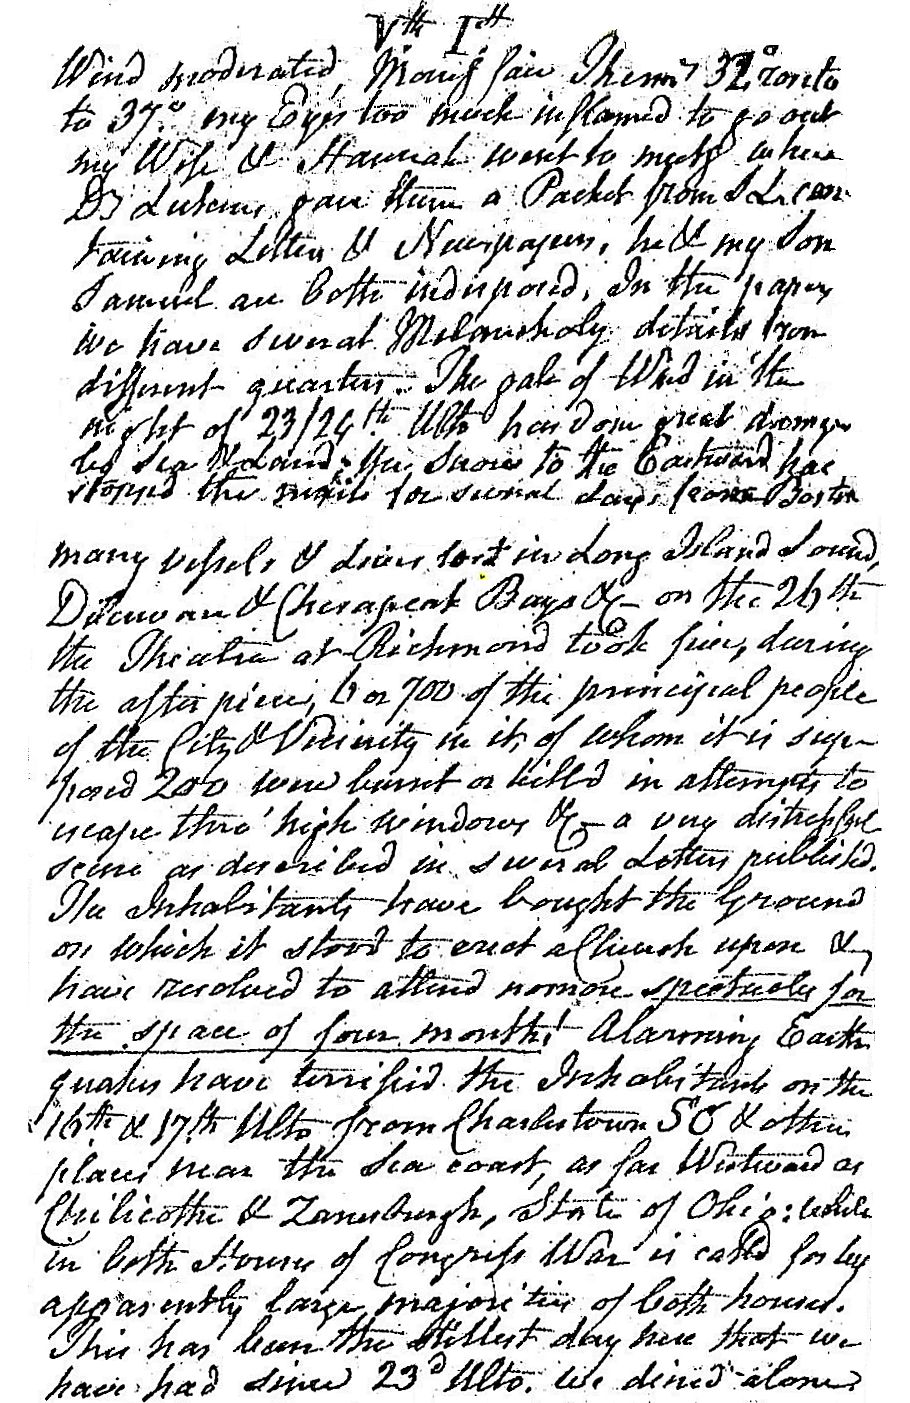 Vth 1st
Wind moderated, Morng fair Thermr 32° rose to
to 37° my Eyes too much inflamed to go out
my Wife & Hannah went to meetg where
Dr Lukens gave them a Packet from I L. con
taining Letters & Newspapers, he & my Son
Samuel are both indisposed, In the papers
we have several Melancholy details from
different quarters. The gale of Wind in the
night of 23/24th Ulto has done great damage
by Sea & Land, the Snow to the Eastward has
stopped the mails for several days from Boston
many vessels & lives lost in Long Island Sound,
Delaware & Chesapeak Bays &c on the 26th
the Theatre at Richmond took fire, during
the after piece, 6 or 700 of the principal people
of the City & Vicinity in it, of whom it is sup-
posed 200 were burnt or killd in attempts to
escape thro' high windows &c - a very distressful
scene as described in several Letters publishd.
The Inhabitants have bought the Ground
on which it stood to erect a Church upon &
have resolved to attend no more spectacles for
the space of four months! Alarming Earth
quakes have terrified the Inhabitants on the
16th & 17th Ulto from Charlestown SC & other
places near the Sea coast, as far Westward as
Chilicothe & Zanesburgh, State of Ohio: while
in both Houses of Congress War is calld for by
apparently large majorities of both houses.
This has been the stillest day here that we
have had since 23d Ulto. we dined alone